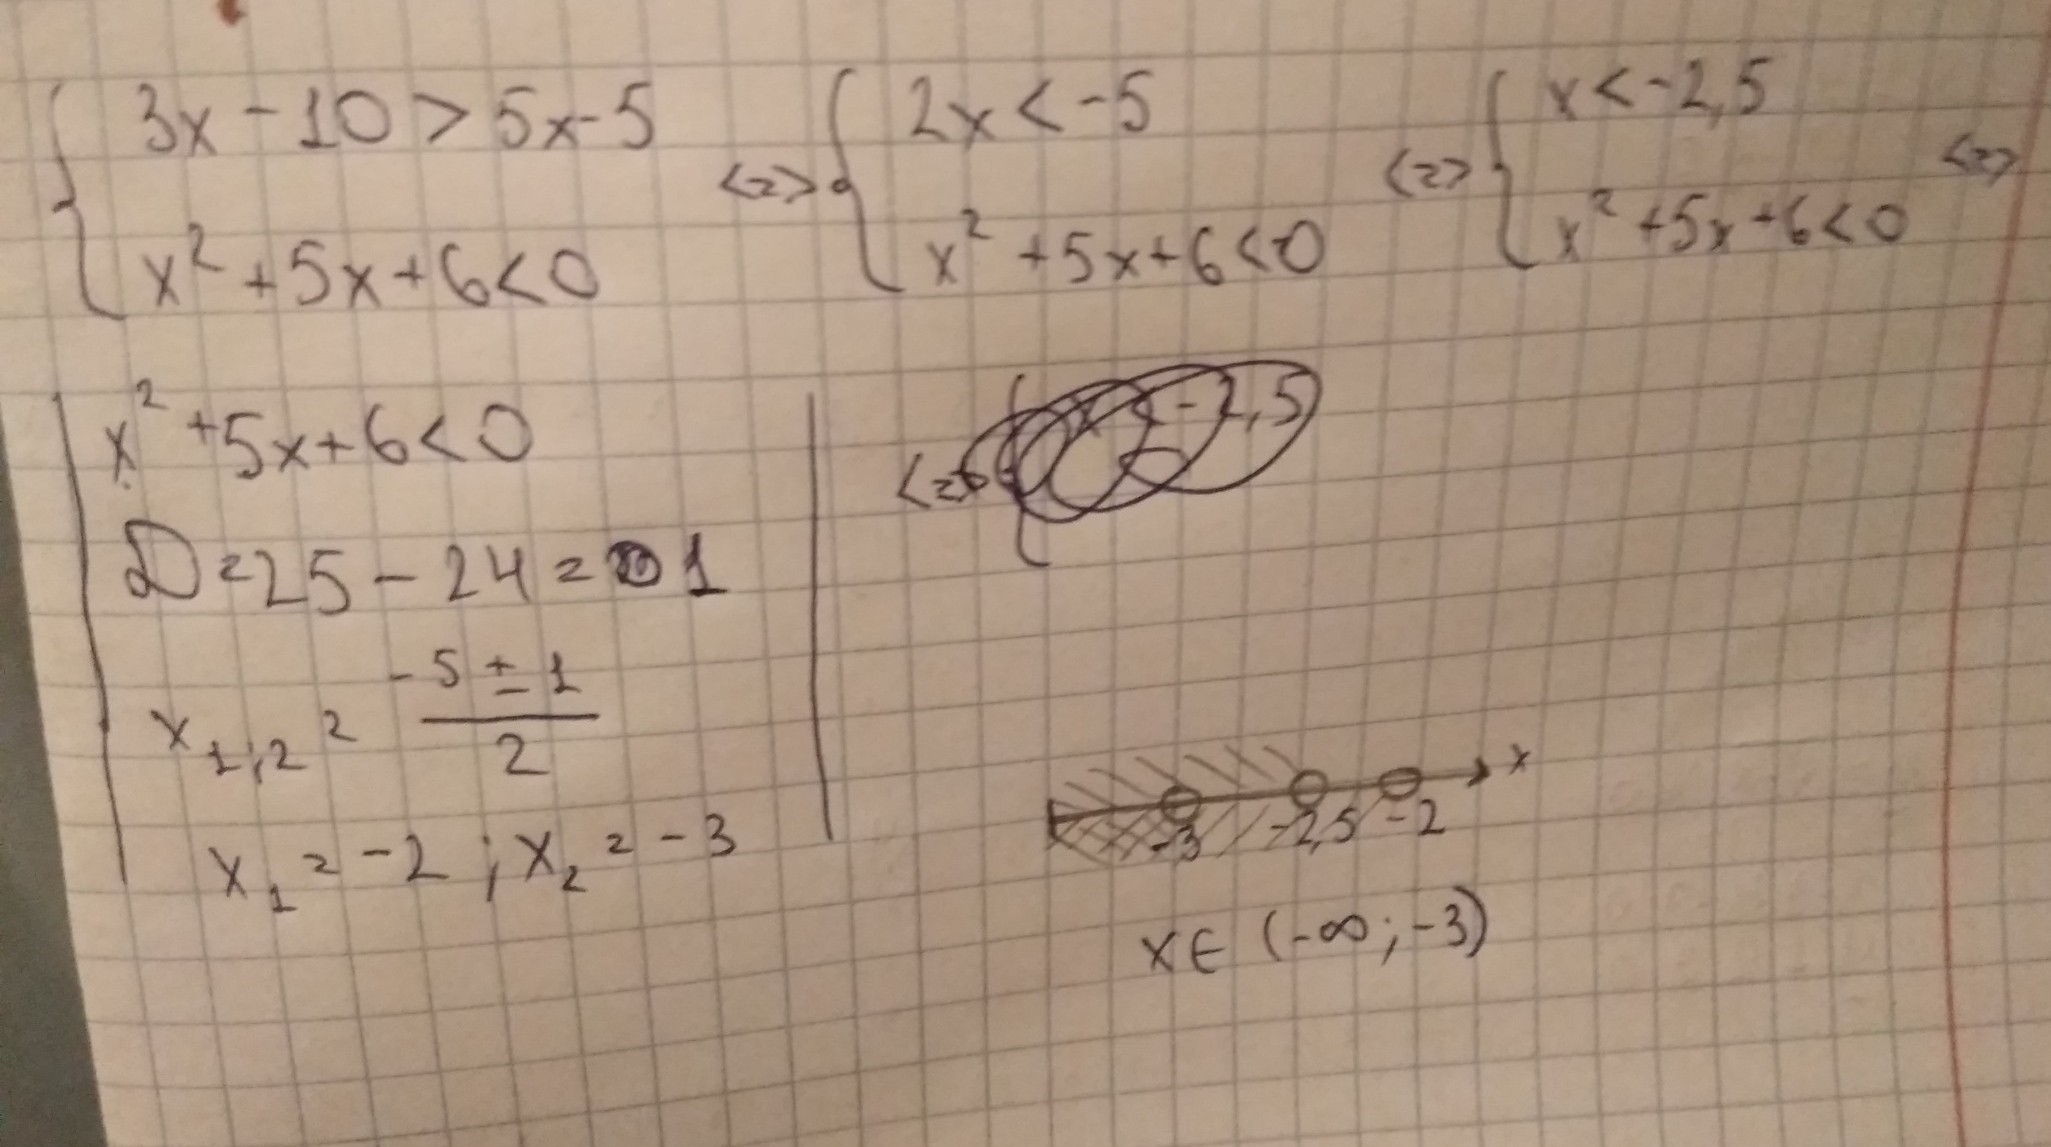 { 3x - 10 > 5x - 5 <=> { 2x < -5 <=> { x < -2,5 <=>
x² + 5x + 6 < 0 x² + 5x + 6 < 0 x² + 5x + 6 < 0
x² + 5x + 6 < 0
D = 25 - 24 = 1
x₁,₂ = (-5 ± 1) / 2
x₁ = -2 ; x₂ = -3
<=> { x < -2,5
x
-3 -2,5 -2
x ∈ (-∞; -3)